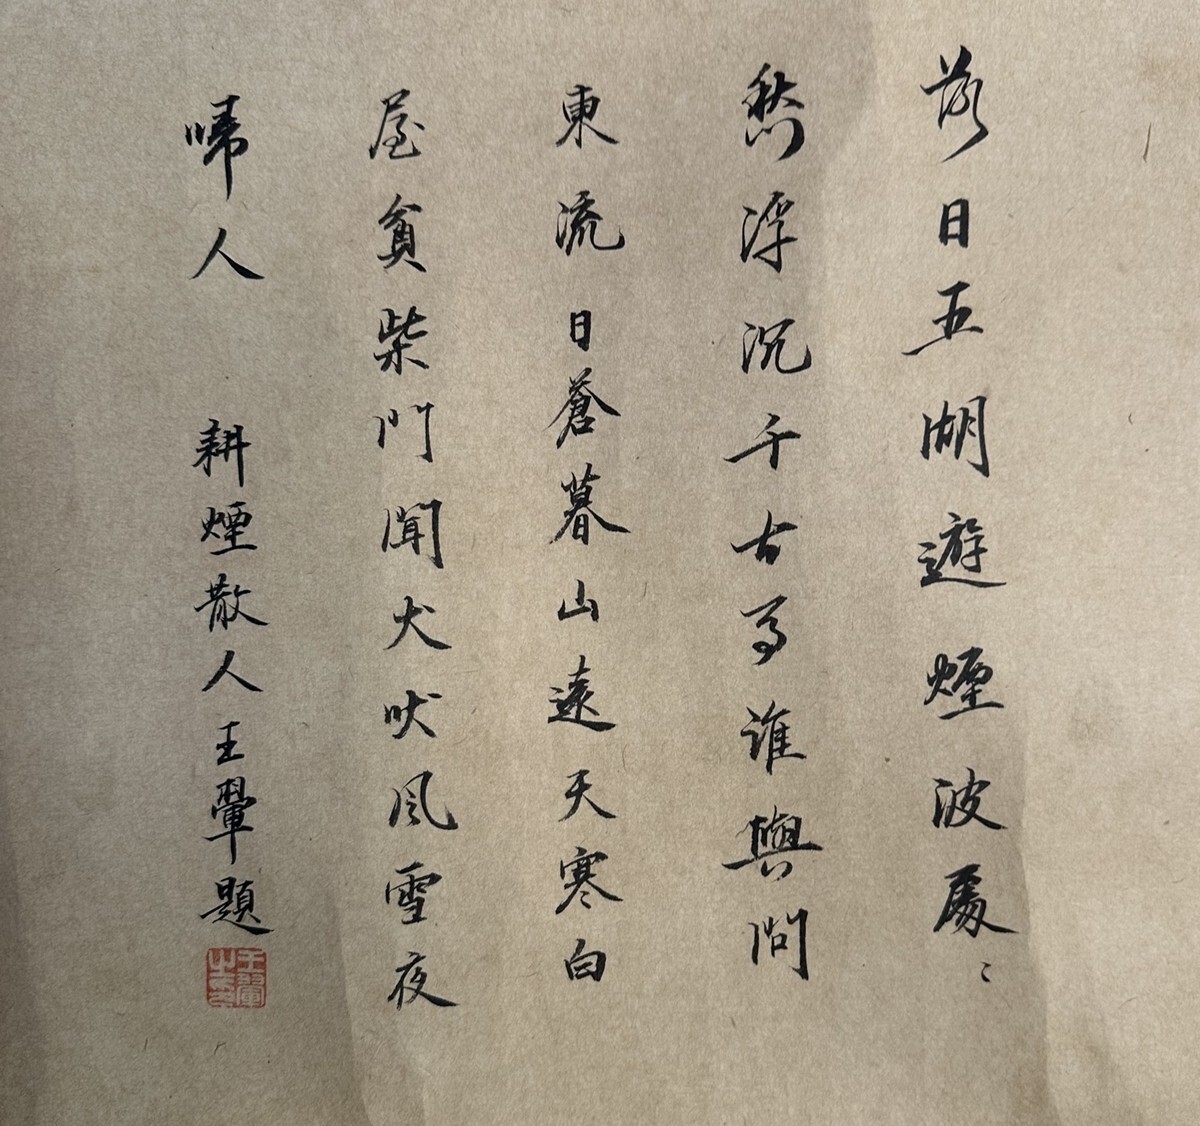 落日五湖遊煙波處〻
愁浮沉千古事誰與問
東流日蒼暮山遠天寒白
屋貧柴門聞犬吠風雪夜
歸人 耕煙散人王翬題
王翬之印